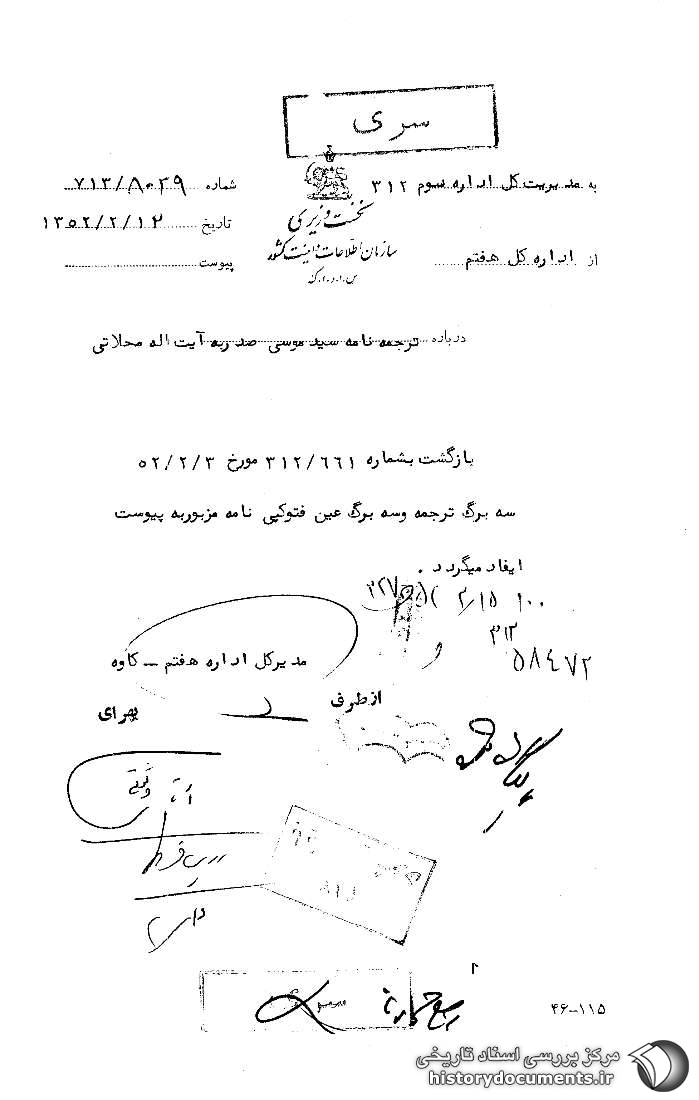 سری
به مدیریت کل اداره سوم ۳۱۲
شماره ۷۱۳/۸۰۳۹
نخست وزیری
تاریخ ۱۳۵۲/۲/۱۲
سازمان اطلاعات و امنیت کشور
از اداره کل هفتم
پیوست
س.ا.و.ا.ک
درباره ترجمه نامه سید موسی صدر به آیت اله محلاتی
بازگشت بشماره ۳۱۲/۶۶۱ مورخ ۵۲/۲/۳
سه برگ ترجمه وسه برگ عین فتوکپی نامه مزبور به پیوست
ایفاد میگردد .
۲/۱۵ ۱۰۰
۳۱۲
۵۸۴۷۲
مدیرکل اداره هفتم – کاوه
از طرف
بهرای
۴۶-۱۱۵
مرکز بررسی اسناد تاریخی
historydocuments.ir